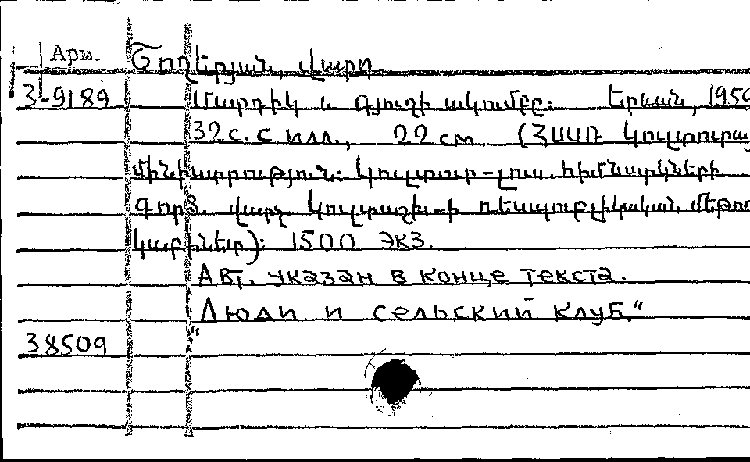 Арм.
Շողերյան, Վարդ
3-9189 Մարդիկ և գյուղի ակումբը: Երևան, 1959
32 с. с илл., 22 см (ՀՍՍՌ Կուլտուրայ
մինիստրություն: Կուլտուր-լուս. հիմնարկների
գործ. վարչ. Կուլտլուս-ի ռեսպուբլիկական մեթոդ
կաբինետ): 1500 экз.
Авт. указан в конце текста.
"Люди и сельский клуб."
38509